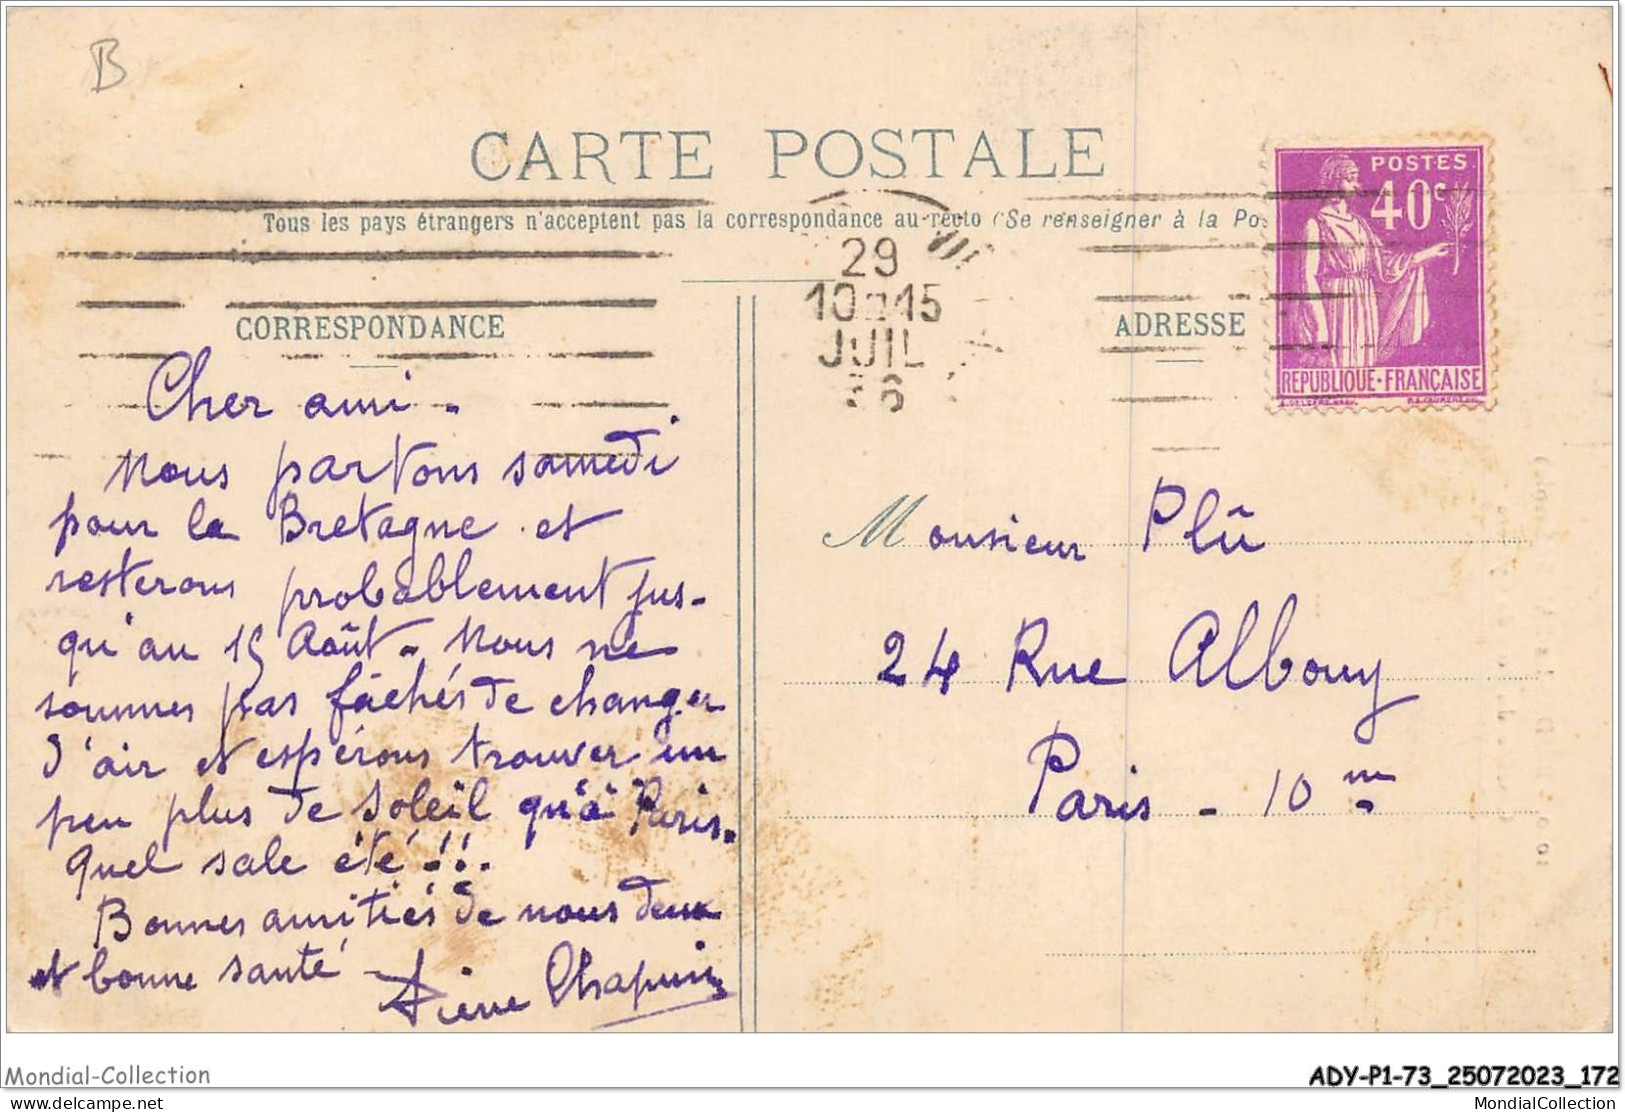 B
CARTE POSTALE
Tous les pays étrangers n'acceptent pas la correspondance au recto (Se renseigner à la Po
POSTES
40c
REPUBLIQUE·FRANÇAISE
29
10 15
JUIL
36
CORRESPONDANCE
ADRESSE
Cher ami.
Nous partons samedi
pour la Bretagne et
resterons probablement jus-
qu'au 15 Août. Nous ne
sommes pas fâchés de changer
d'air et espérons trouver un
peu plus de soleil qu'à Paris.
Quel sale été !!!
Bonnes amitiés de nous deux
et bonne santé
Pierre
Monsieur Plû
24 Rue Albouy
Paris - 10 me
Mondial-Collection
ADY-P1-73_25072023_172
delcampe.net
MondialCollection